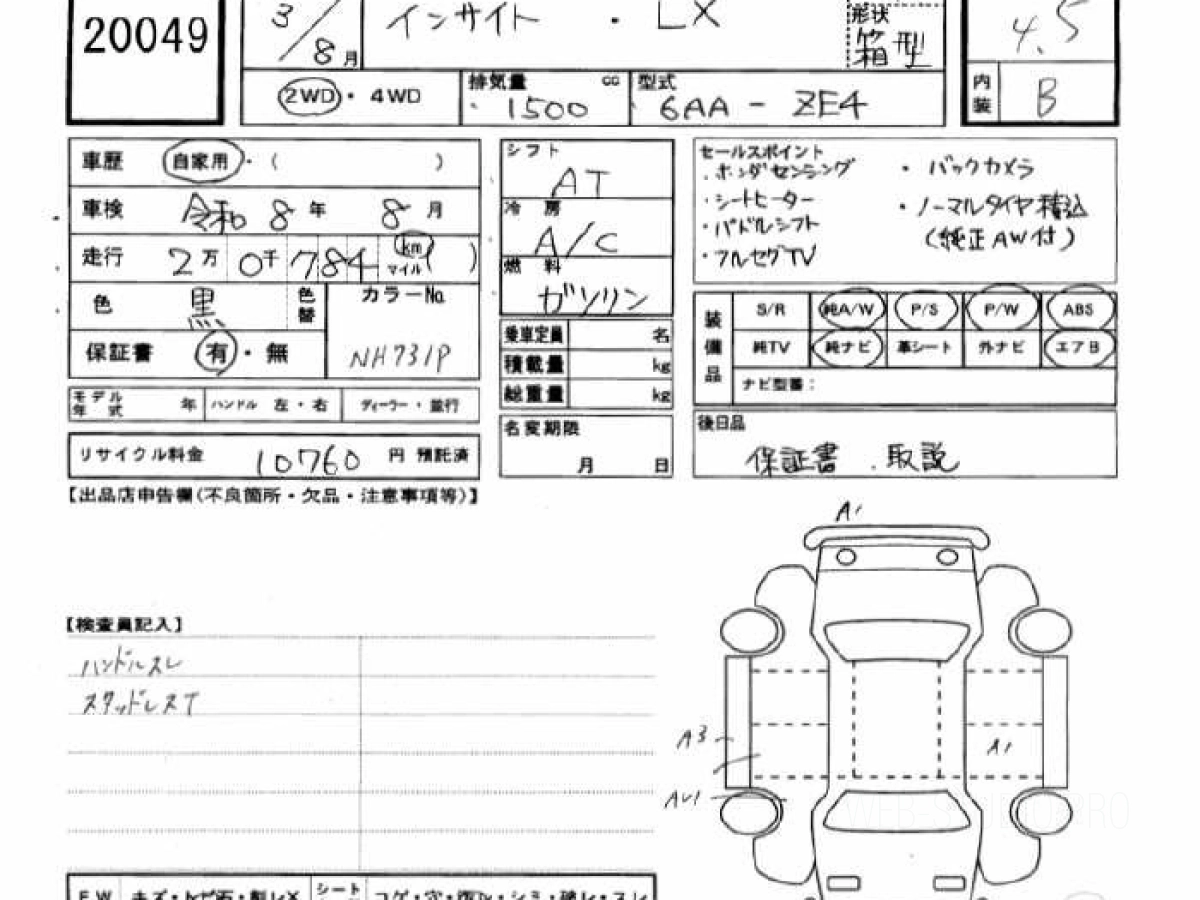 20049
3/8月
インサイト ・ LX
形状
箱型
4.5
2WD・4WD
排気量 cc
1500
型式
6AA - ZE4
内装 B
車歴 自家用・( )
車検 令和 8 年 8 月
走行 2万 0千 784 km マイル( )
色 黒 色替
カラーNo
NH731P
保証書 有・無
モデル年式 年 ハンドル 左・右 ディーラー・並行
リサイクル料金 10760 円 預託済
シフト
AT
冷房
A/C
燃料
ガソリン
乗車定員 名
積載量 kg
総重量 kg
名変期限
月 日
セールスポイント
・ホンダセンシング ・バックカメラ
・シートヒーター ・ノーマルタイヤ積込
・パドルシフト (純正AW付)
・フルセグTV
装備品
S/R 純A/W P/S P/W ABS
純TV 純ナビ 革シート 外ナビ エアB
ナビ型番：
後日品
保証書 . 取説
【出品店申告欄(不良箇所・欠品・注意事項等)】
【検査員記入】
ハンドルスレ
スタッドレスT
A1
A3
A1
AU1
WEB-S
RO
FW キズ・トビ石・
シート コゲ・穴・
・シミ・破レ・スレ